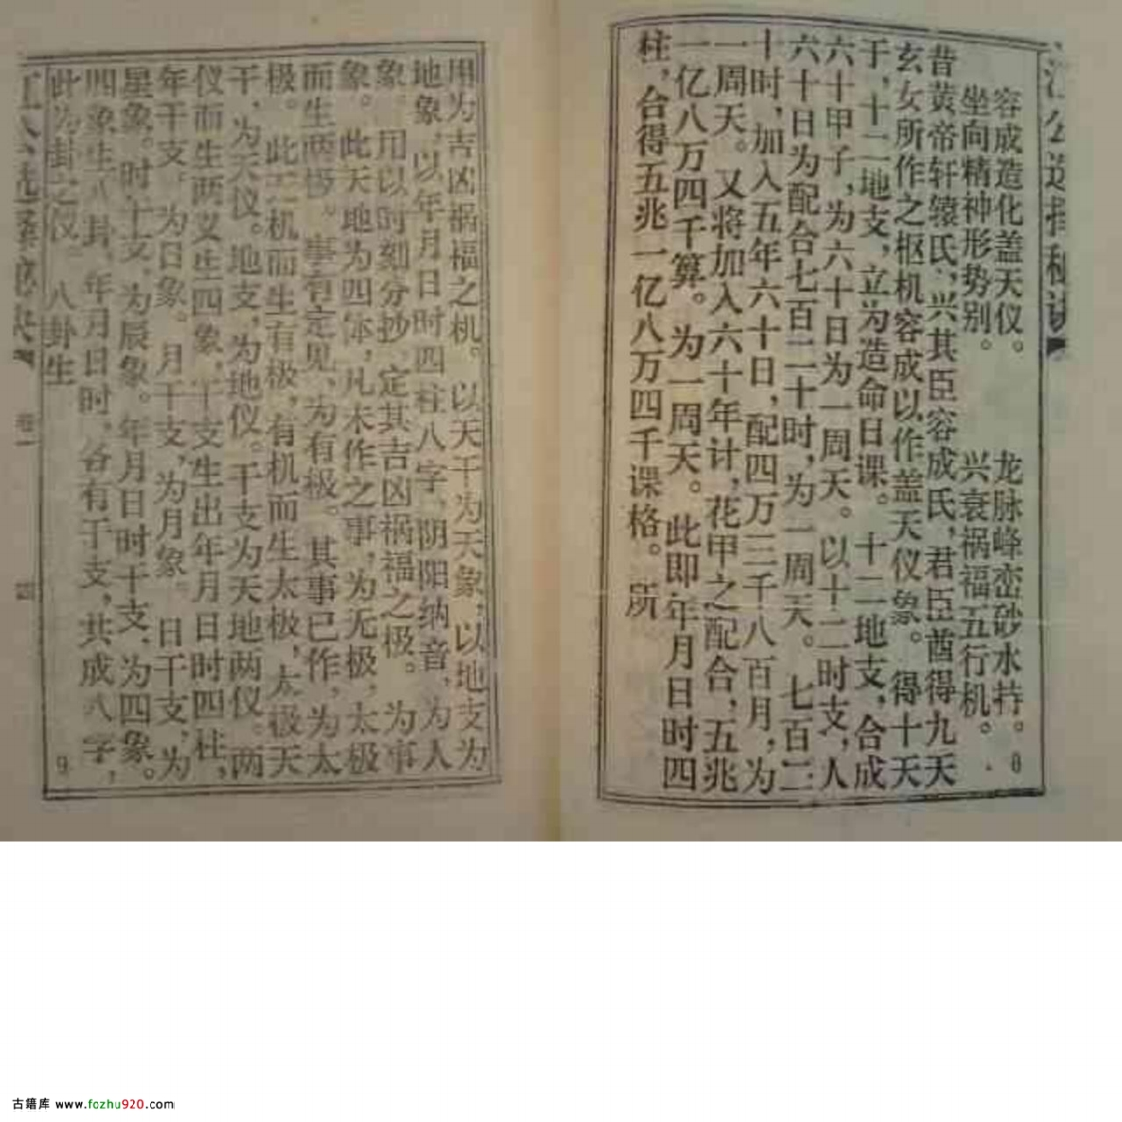 江公选择秘诀
容成造化盖天仪。 龙脉峰峦砂水持。
坐向精神形势别。 兴衰祸福五行机。
昔黄帝轩辕氏,兴其臣容成氏,君臣酋得九天
玄女所作之枢机容成以作盖天仪象。得十天
于,十二地支,立为造命日课。十二地支,合成
六十甲子,为六十日为一周天。以十二时支,人
六十日为配合七百二十时,为一周天。七百二
十时,加入五年六十日,配四万三千八百月,为
一周天。又将加入六十年计,花甲之配合,五兆
一亿八万四千算。为一周天。此即年月日时四
柱,合得五兆一亿八万四千课格。所
8
用为吉凶祸福之机。以天干为天象,以地支为
地象,以年月日时四柱八字,阴阳纳音,为人
象。用以时刻分抄,定其吉凶祸福之极。为事
象。此天地为四体,凡未作之事,为无极,太极
而生两极。事有定见,为有极。其事已作,为太
极。此机而生有极,有机而生太极,太极天
干,为天仪。地支,为地仪。干支为天地两仪。两
仪而生两义生四象,干支生出年月日时四柱,
年干支。为日象。月干支,为月象。日干支,为
星象。时干支,为辰象。年月日时干支,为四象。
四象生八卦,年月日时,各有于支,共成八字,
此为卦之仪 八卦生
9
江公选择秘诀
卷一
四
古籍库 www.fozhu920.com